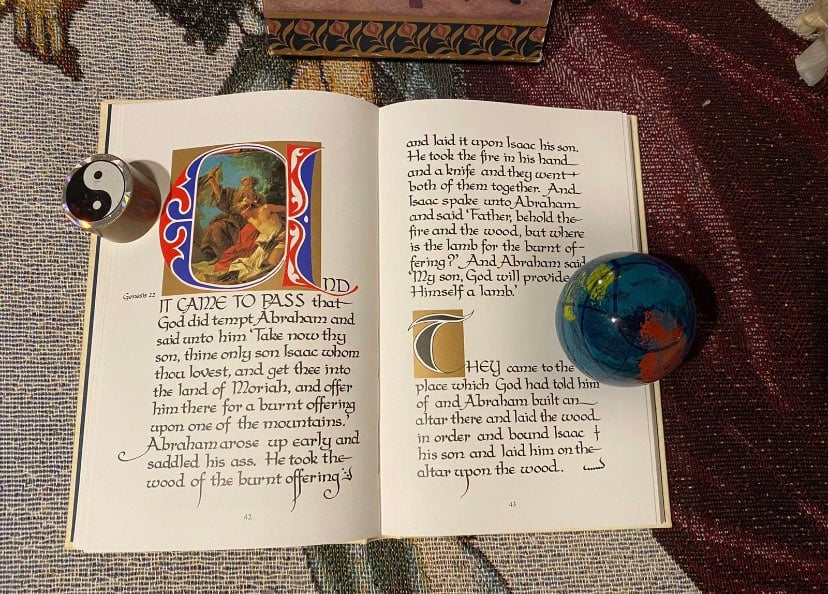 AND
Genesis 22
IT CAME TO PASS that
God did tempt Abraham and
said unto him 'Take now thy
son, thine only son Isaac whom
thou lovest, and get thee into
the land of Moriah, and offer
him there for a burnt offering
upon one of the mountains.'
Abraham arose up early and
saddled his ass. He took the
wood of the burnt offering
42
and laid it upon Isaac his son.
He took the fire in his hand
and a knife and they went
both of them together. And
Isaac spake unto Abraham
and said 'Father, behold the
fire and the wood, but where
is the lamb for the burnt of-
fering?' And Abraham said
'My son, God will provide
Himself a lamb.'
THEY came to the
place which God had told him
of and Abraham built an
altar there and laid the wood
in order and bound Isaac
his son and laid him on the
altar upon the wood.
43